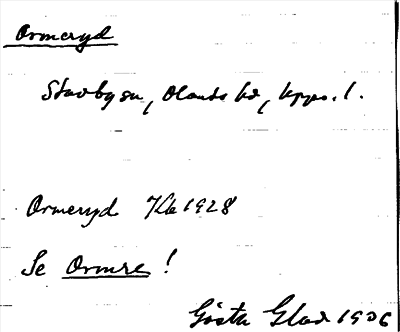 Ormeryd
Stavby sn, Olands hd, Upps. l.
Ormeryd Kb 1928
Se Ormre!
Gösta Glad 1936